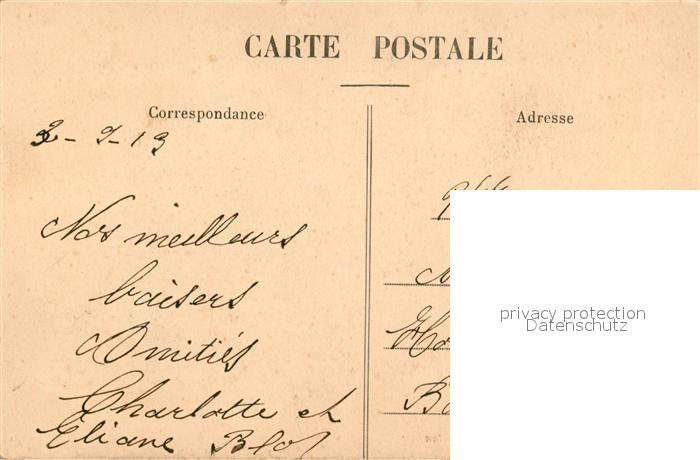 CARTE POSTALE
Correspondance
Adresse
3-9-13
Nos meilleurs
baisers
Amitiés
Charlotte et
Eliane Blot
privacy protection
Datenschutz